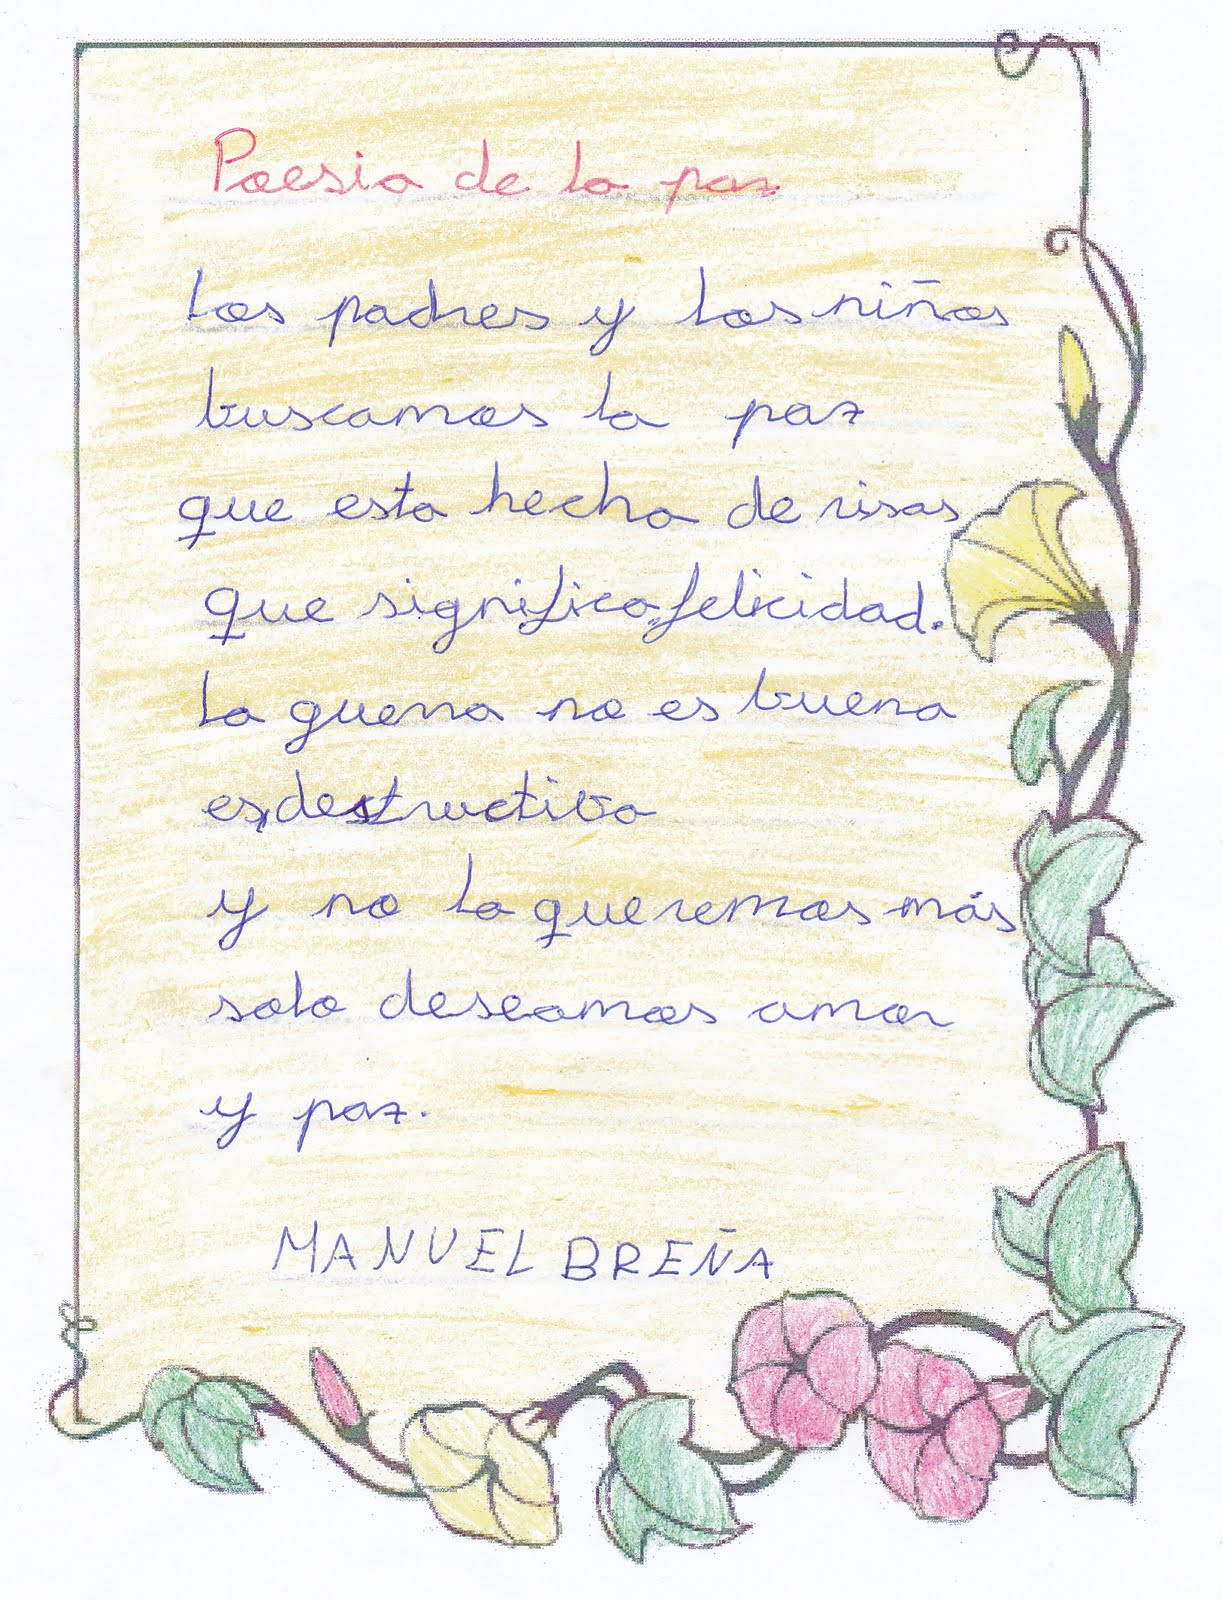 Poesia de la paz
Los padres y los niños
buscamos la paz
que esta hecha de risas
que significa felicidad.
La guerra no es buena
es destructiva
y no la queremos más
solo deseamos amor
y paz.
MANUEL BREÑA